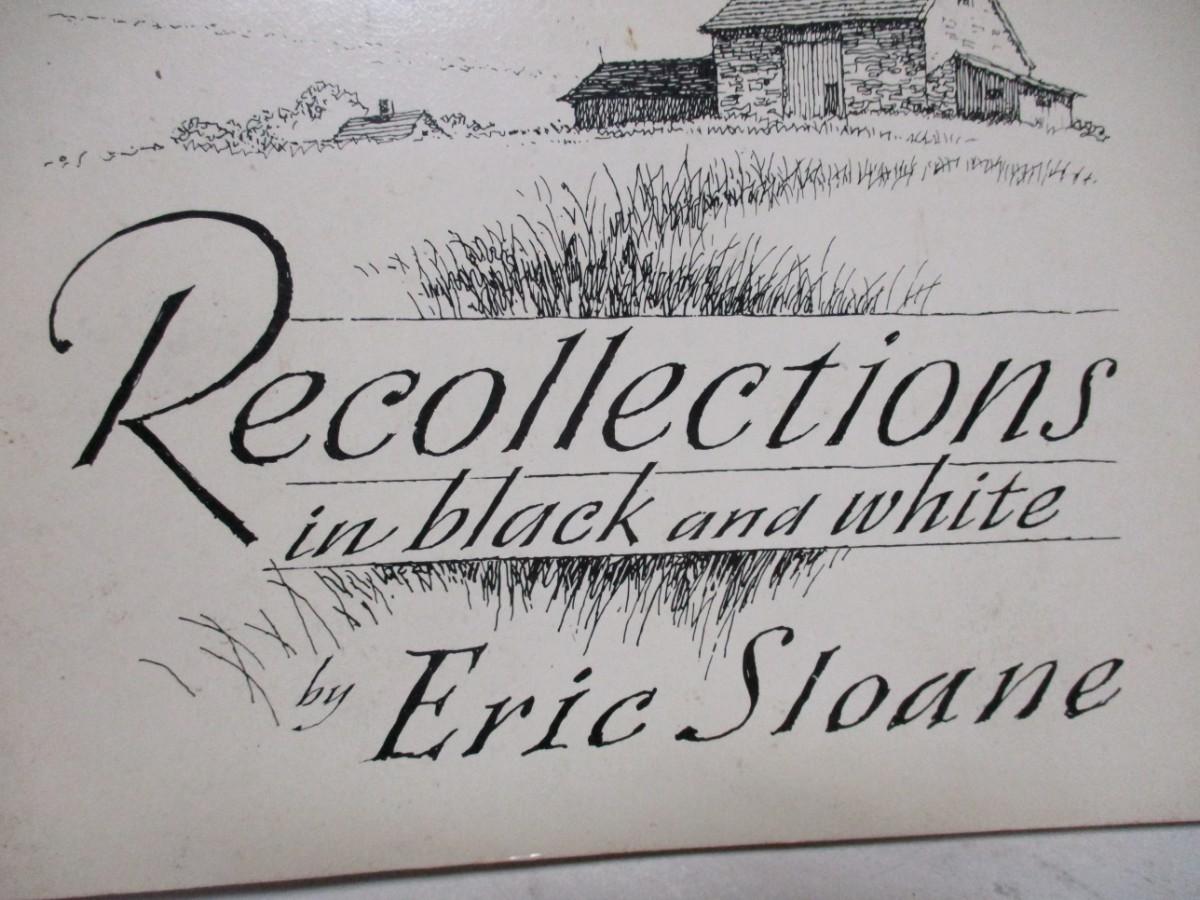 Recollections
in black and white
by Eric Sloane